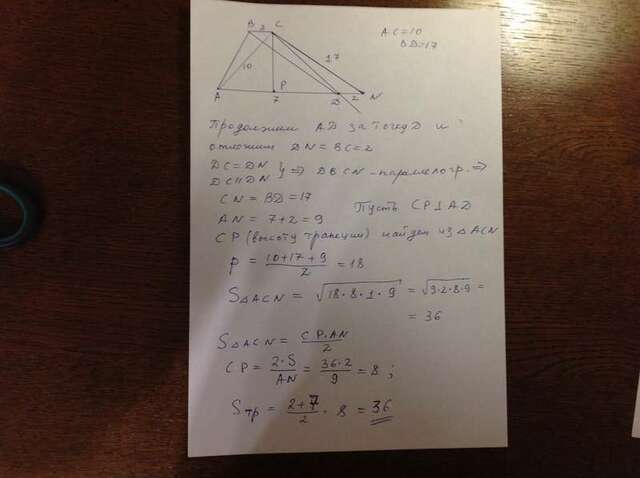 B 2 C
AC=10
BD=17
10
17
A P 7 D 2 N
Продолжим AD за точку D и
отложим DN = BC = 2
DC = DN } => DBCN - параллелогр. =>
DC || DN
CN = BD = 17
AN = 7+2 = 9 Пусть CP ⊥ AD
CP (высоту трапеции) найдем из △ACN
p = (10+17+9)/2 = 18
S△ACN = √(18·8·1·9) = √(9·2·8·9) =
= 36
S△ACN = (CP·AN)/2
CP = (2·S)/AN = (36·2)/9 = 8 ;
Sтр = (2+7)/2 · 8 = 36